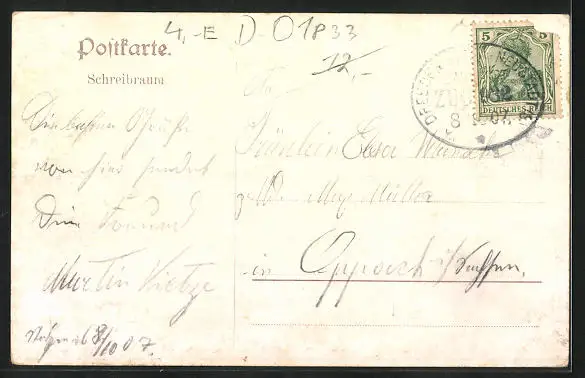 4,-E D-01833
12,-
Postkarte.
Schreibraum
5 5
DEUTSCHES REICH
DRESDEN
ZUG
8 10 07
Die besten Grüße
von hier sendet
Dein Freund
Martin Kietze
8/10 07.
An
Fräulein Elsa
Müller
in Oppach i/Sachsen.